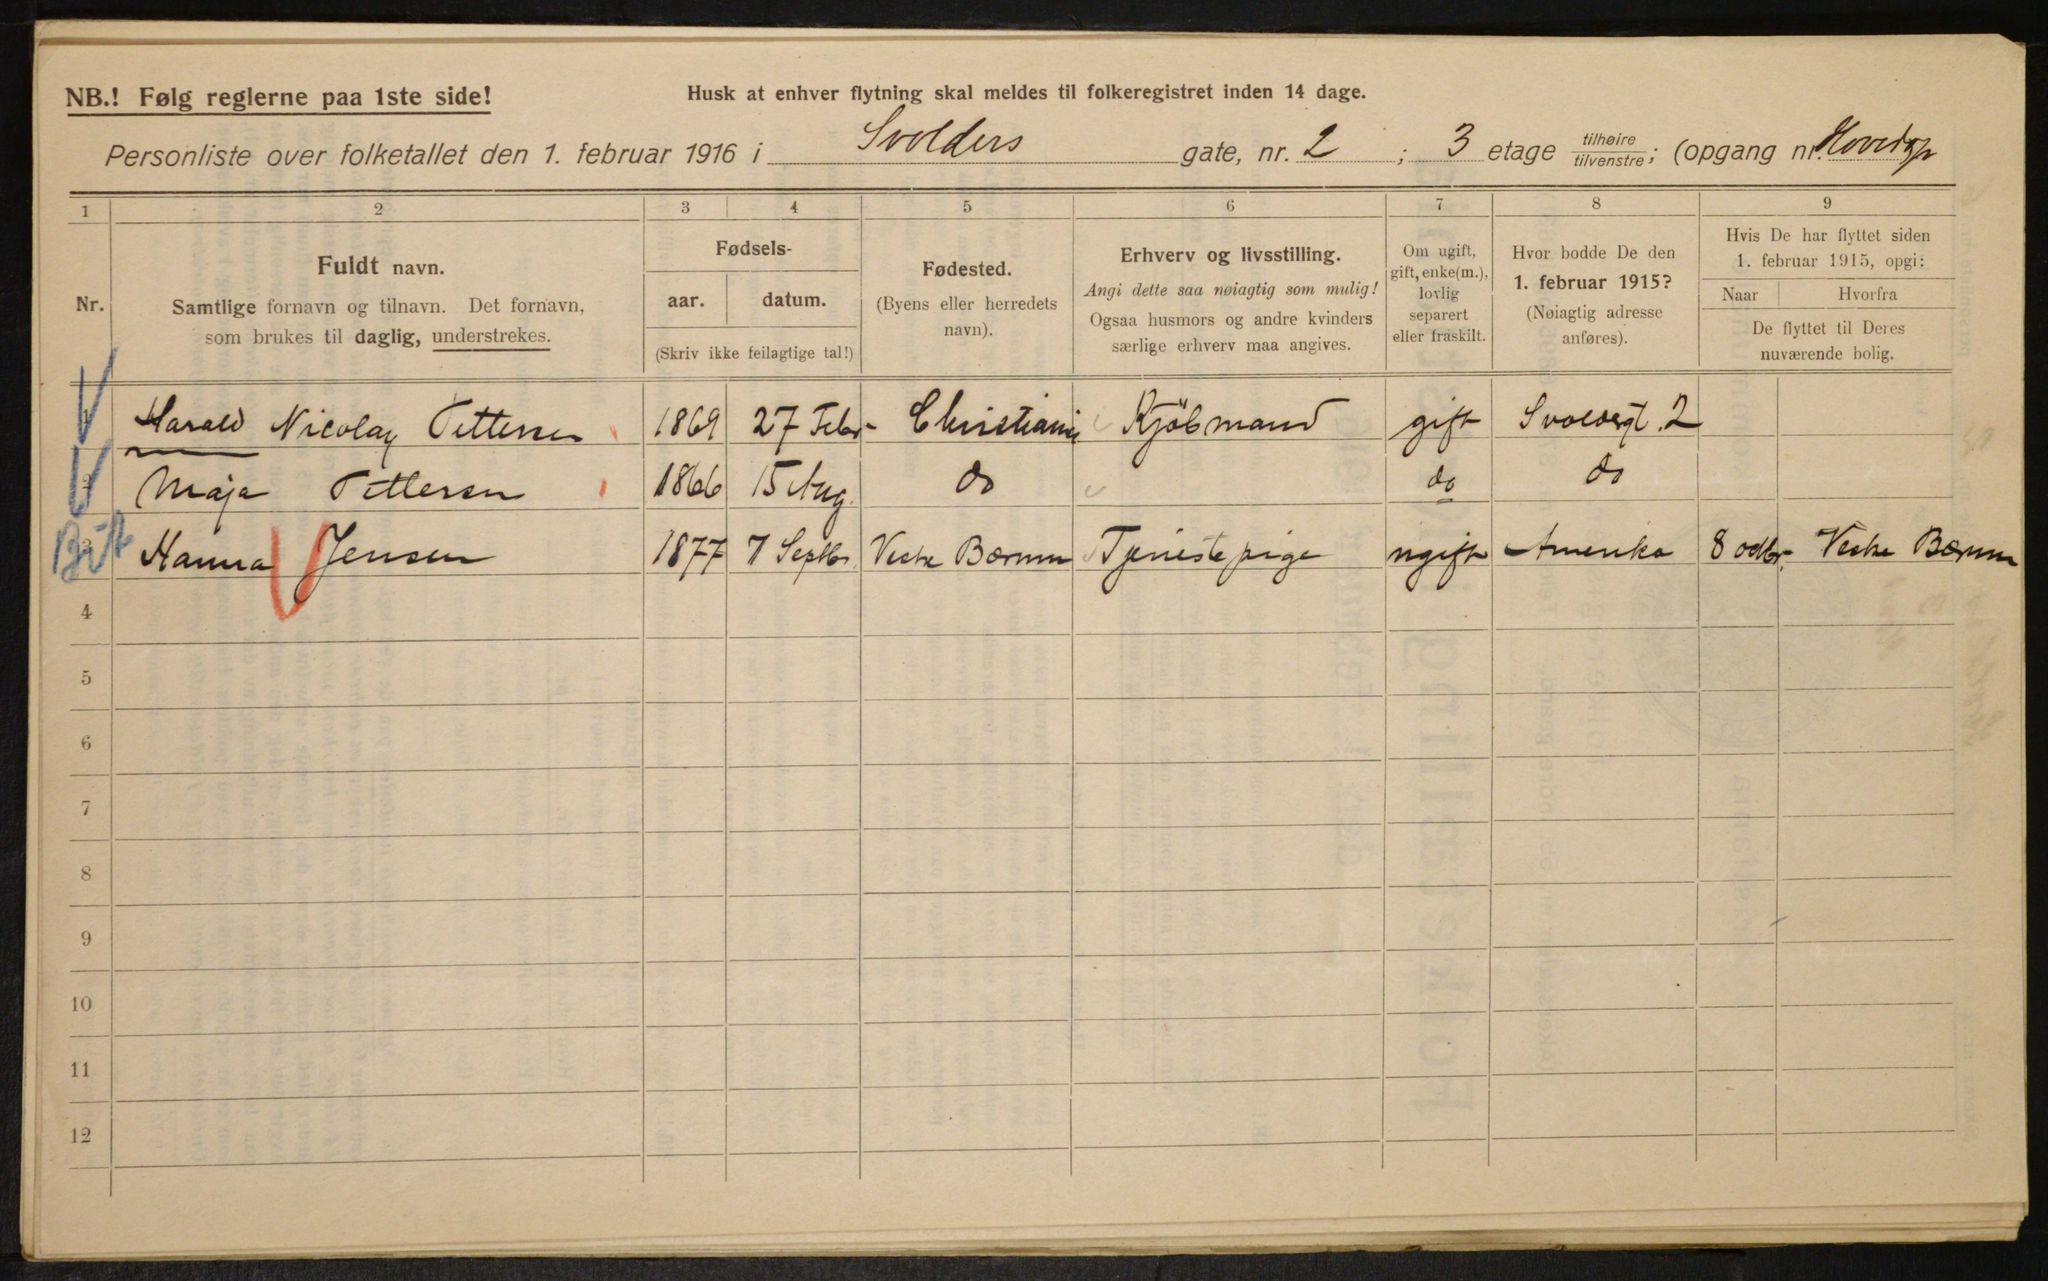 NB.! Følg reglerne paa 1ste side!
Husk at enhver flytning skal meldes til folkeregistret inden 14 dage.
Personliste over folketallet den 1. februar 1916 i Svolders gate, nr. 2 ; 3 etage tilhøire/tilvenstre; (opgang nr. Hovedop
1 2 3 4 5 6 7 8 9
Nr.
Fuldt navn.
Samtlige fornavn og tilnavn. Det fornavn,
som brukes til daglig, understrekes.
Fødsels-
aar. datum.
(Skriv ikke feilagtige tal!)
Fødested.
(Byens eller herredets
navn).
Erhverv og livsstilling.
Angi dette saa nøiagtig som mulig!
Ogsaa husmors og andre kvinders
særlige erhverv maa angives.
Om ugift,
gift, enke(m.),
lovlig
separert
eller fraskilt.
Hvor bodde De den
1. februar 1915?
(Nøiagtig adresse
anføres).
Hvis De har flyttet siden
1. februar 1915, opgi:
Naar Hvorfra
De flyttet til Deres
nuværende bolig.
1 Harald Nicolay Pettersen 1869 27 Febr Christiania Kjöbmand gift Svoldergt. 2
2 Maja Pettersen 1866 15 Aug. do do do
3 Hanna Jensen 1877 7 Septbr. Vestre Bærum Tjenestepige ugift Amerika 8 octbr. Vestre Bærum
4
5
6
7
8
9
10
11
12